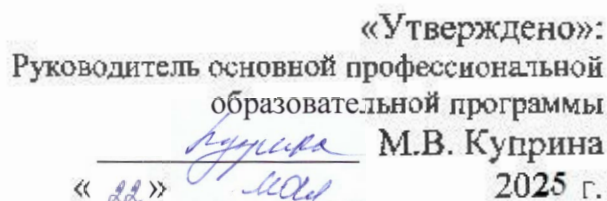 «Утверждено»:
Руководитель основной профессиональной
образовательной программы
Куприна М.В. Куприна
« 22 » мая 2025 г.